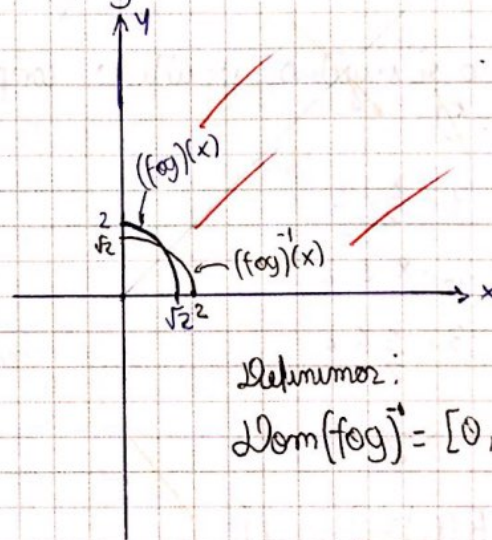 y
(fog)(x)
2
√2
(fog)⁻¹(x)
x
√2 2
Definimos:
Dom(fog)⁻¹ = [0,